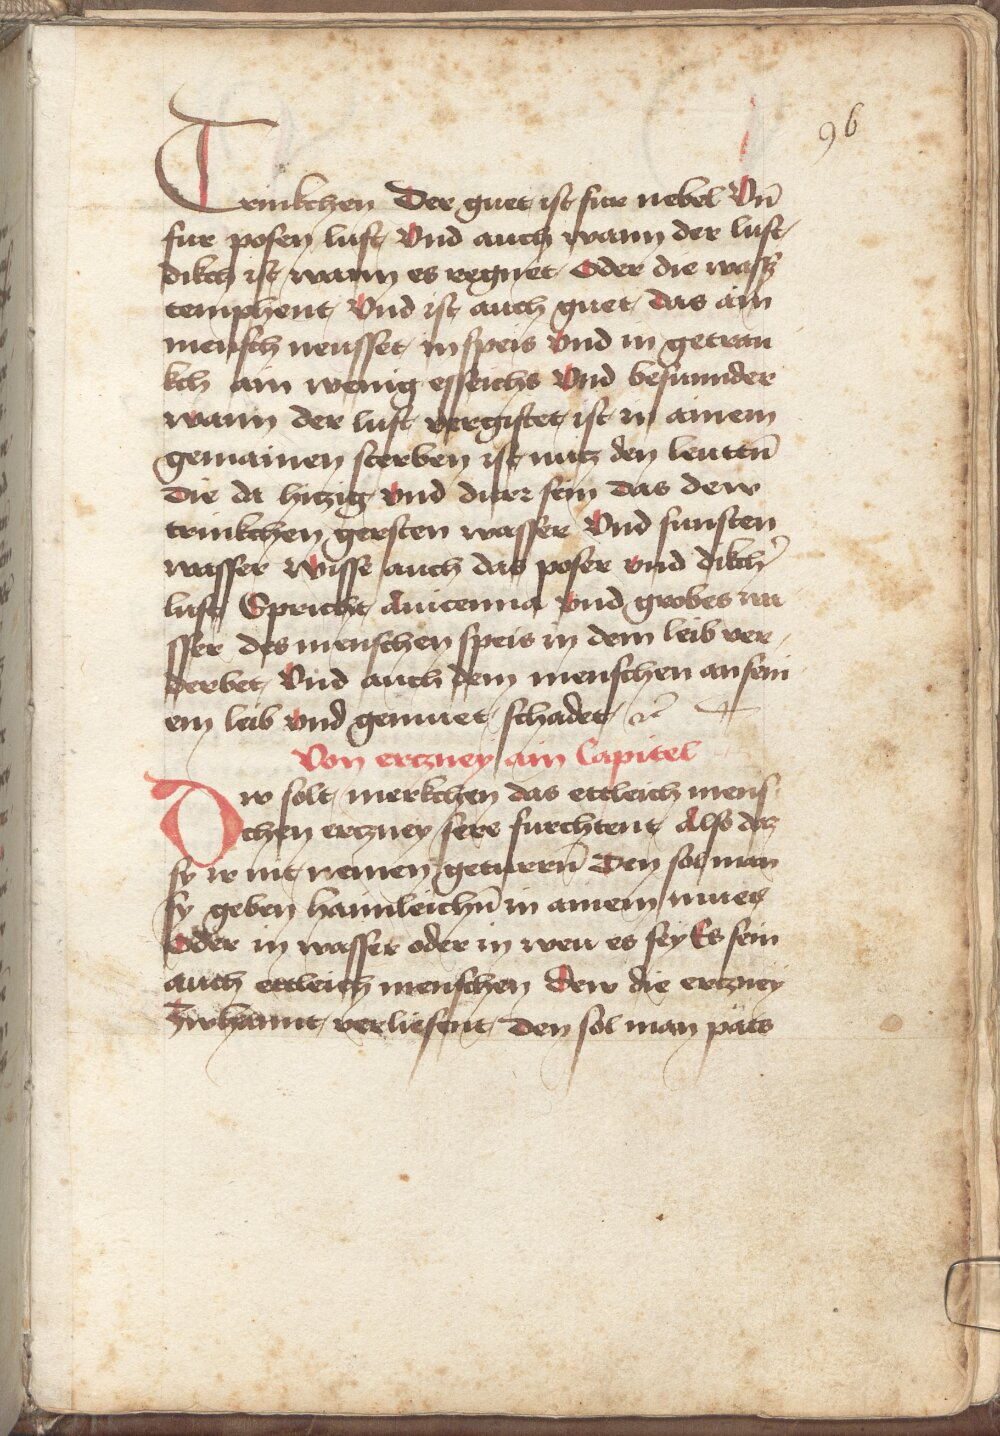 96
Trinkchen Der guet ist fur nebel Vn̄
fur posen luft Vnd auch wann der luft
dikch ist wann es regnet Oder die wassʒ
temphent Vnd ist auch guet das ain
mensch neusset in speis vnd in getran
kch ain wenig esseichs Vnd besunnder
wann der luft vergiftet ist in ainem
gemainen sterben ist nutz den leuttn̄
Die da hitzig vnd durr sein Das dew
trinkchen gersten wasser Vnd funsten
wasser Wisse auch das poser vnd dikch᾽
luft Spricht Auicenna vnd grobes wa
sser des menschen speis in dem leib ver
derbet Vnd auch dem menschen an sein
em leib vnd gemuet schadet ꝛc̄
Von erczney ain Capitel
Dw solt merkchen das ettleich mens
chen erczney sere furchtent Also daz
sy ir nit nemen geturrn̄ Den sol man
sy geben haimleichn̄ in ainem mues
Oder in wasser oder in weu es sey Es sein
auch ettleich menschen Dew die erczney
Zwhannt verliesent Den sol man pats